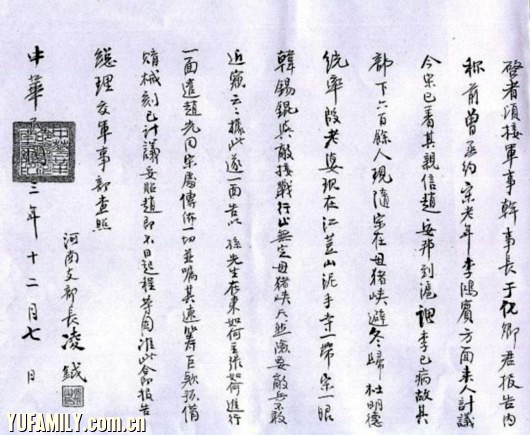 啓者頃接軍事幹事長于卿君报告内
称前曾約宋老年李鴻賓方面来人計議
今宋已着其親信趙安邦到滬謂李已病故其
部下六百餘人現隨宋在母猪峡避冬歸杜明德
统率段老婆現在江蓋山泥寺一帶宗一眼
韓錫錕與敵接戰行止無定母猪峡天然險要敵兵不敢
近窺云云據此遂一面告以孫先生在東如何主張如何進行
一面遣趙光回宋處傳佈一切並囑其速籌巨款預備
械刻已計議妥貼趙即不日起程等因准此合即报告
總理交軍事部查照
河南支部長凌鉞
中華三年十二月七日
YUFAMILY.com.cn